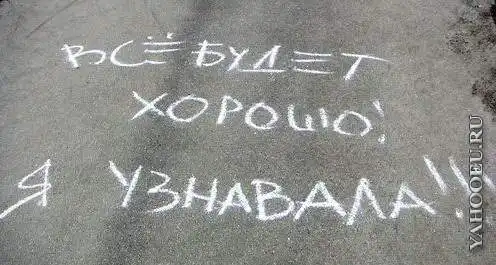 ВСЁ БУДЕТ
ХОРОШО!
Я УЗНАВАЛА!!
YAHOOEU.RU